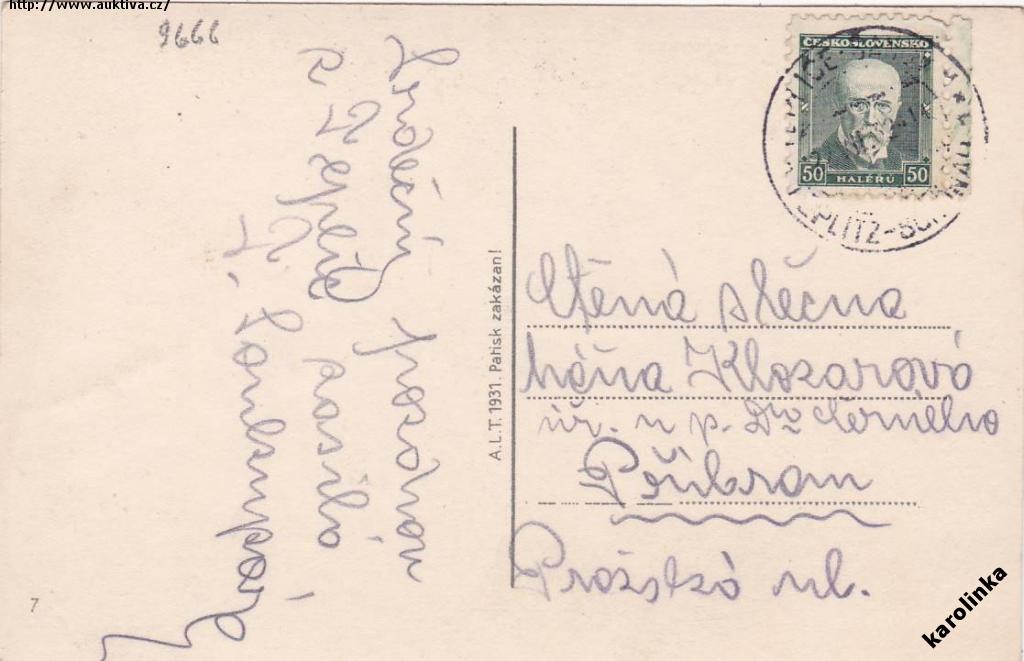 http://www.auktiva.cz/
9666
Srdečný pozdrav
z Teplic
zasílá
ČESKOSLOVENSKO
50 HALÉŘŮ 50
TEPLITZ-SCHÖNAU
A.L.T. 1931. Patisk zakázan!
Ctěná slečna
Máňa Klozarová
úř. u p. Dra Černého
Příbram
Pražská ul.
7
karolinka